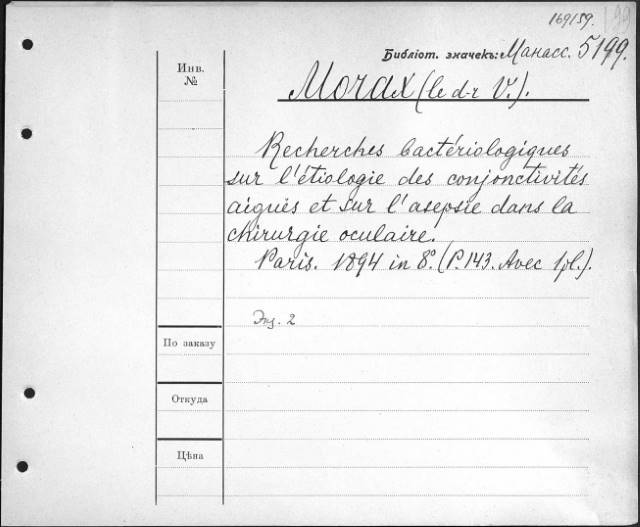 169/59.
Библіот. значекъ: Манасс. 5199.
Инв.
№
Morax (le d-r V.).
Recherches bactériologiques
sur l'étiologie des conjonctivités
aiguës et sur l'asepsie dans la
chirurgie oculaire.
Paris. 1894 in 8°. (P. 143. Avec 1 pl.).
Экз. 2
По заказу
Откуда
Цѣна